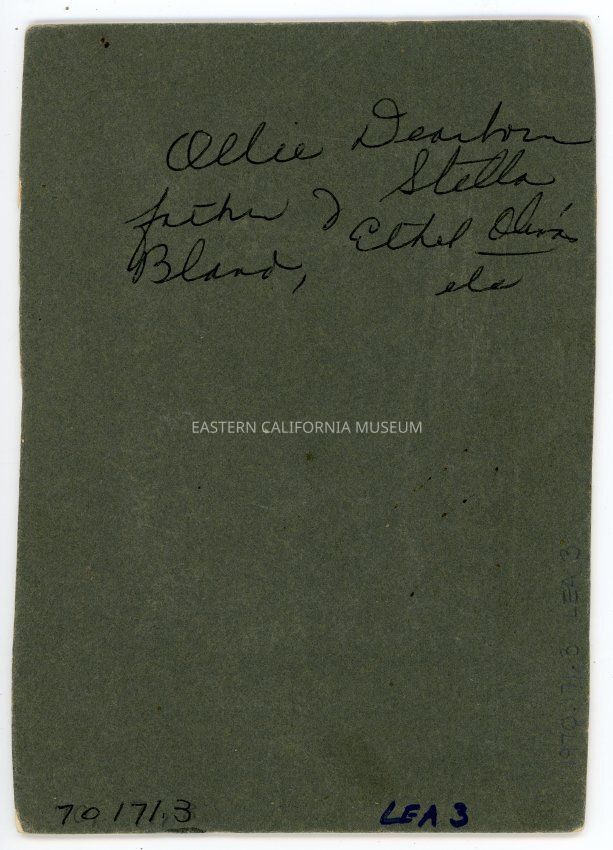 Ollie Dearborn
father of Stella
Bland, Ethel Olivas
etc
EASTERN CALIFORNIA MUSEUM
970.171.3 LEA 3
70 171.3
LEA 3